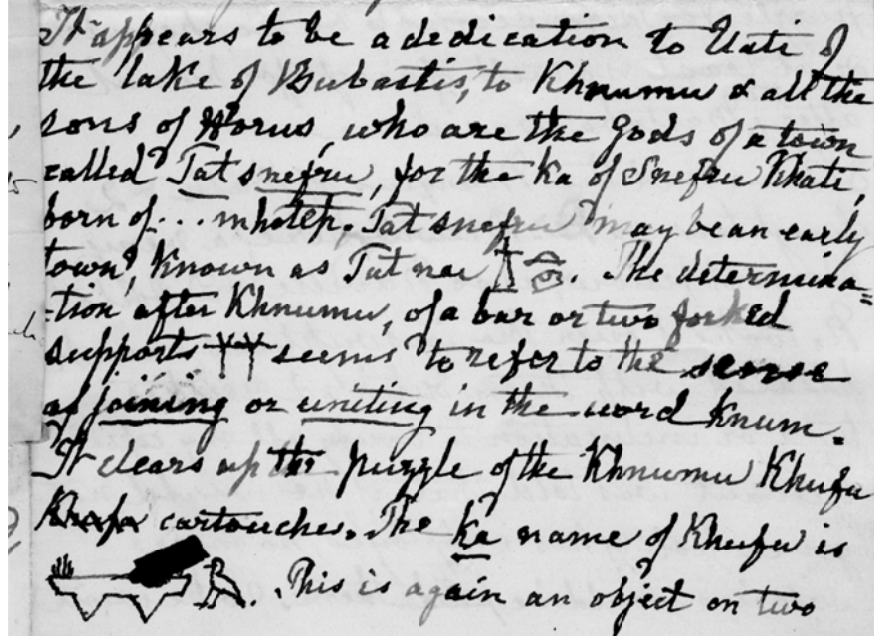 It appears to be a dedication to Uati of
the lake of Bubastis, to Khnumu & all the
sons of Horus, who are the gods of a town
called Tat snefru, for the ka of Snefru Khati,
born of ... mhotep. Tat snefru may be an early
town, known as Tat nae. The determina=
-tion after Khnumu, of a bar or two forked
supports seems to refer to the sense
of joining or uniting in the word Knum.
It clears up the puzzle of the Khnumu Khufu
cartouche. The ka name of Khufu is
This is again an object on two